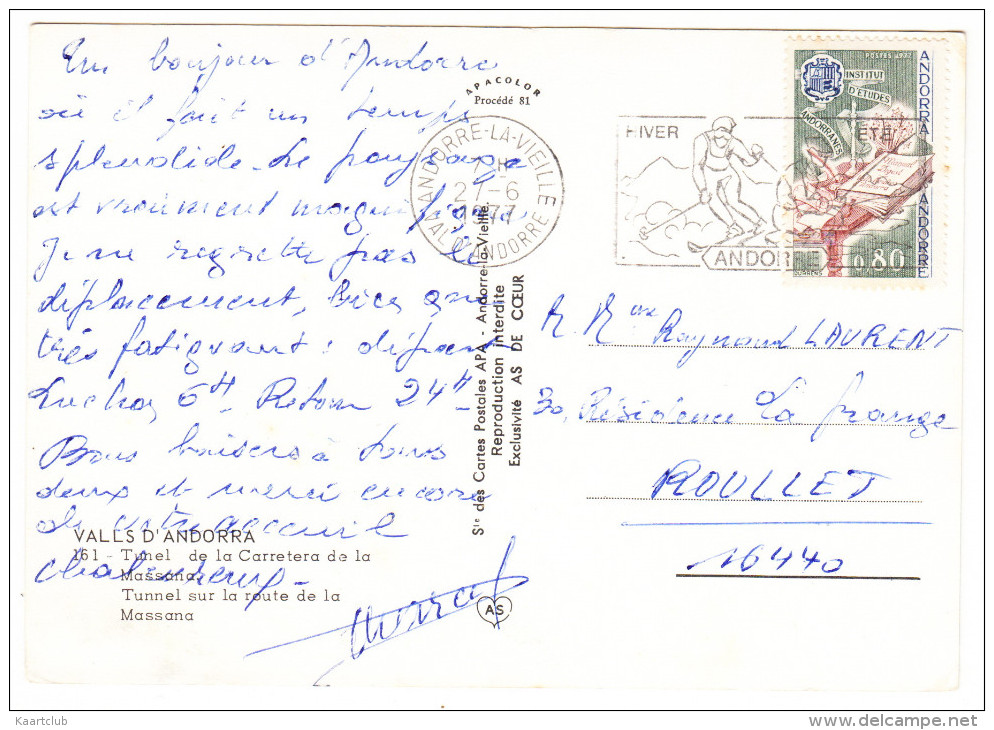 Un bonjour d'Andorre
où il fait un temps
splendide. Le paysage
est vraiment magnifique
Je ne regrette pas le
déplacement, bien que
très fatiguant : départ
Luchon 6H - Retour 24H -
Bons baisers à tous
deux et merci encore
de votre accueil
chaleureux -
VALLS D'ANDORRA
161 - Tunel de la Carretera de la
Massana
Tunnel sur la route de la
Massana
APACOLOR
Procédé 81
Sté des Cartes Postales APA - Andorre-la-Vieille.
Reproduction interdite
Exclusivité AS DE CŒUR
AS
ANDORRE-LA-VIEILLE
27-6
1977
VAL D'ANDORRE
HIVER
ETE
ANDORRE
INSTITUT
D'ETUDES
ANDORRANES
ANDORRA
ANDORRE
0,80
M. Mme Raymond LAURENT
30, Résidence La Grange
ROULLET
16440
Kaartclub
www.delcampe.net